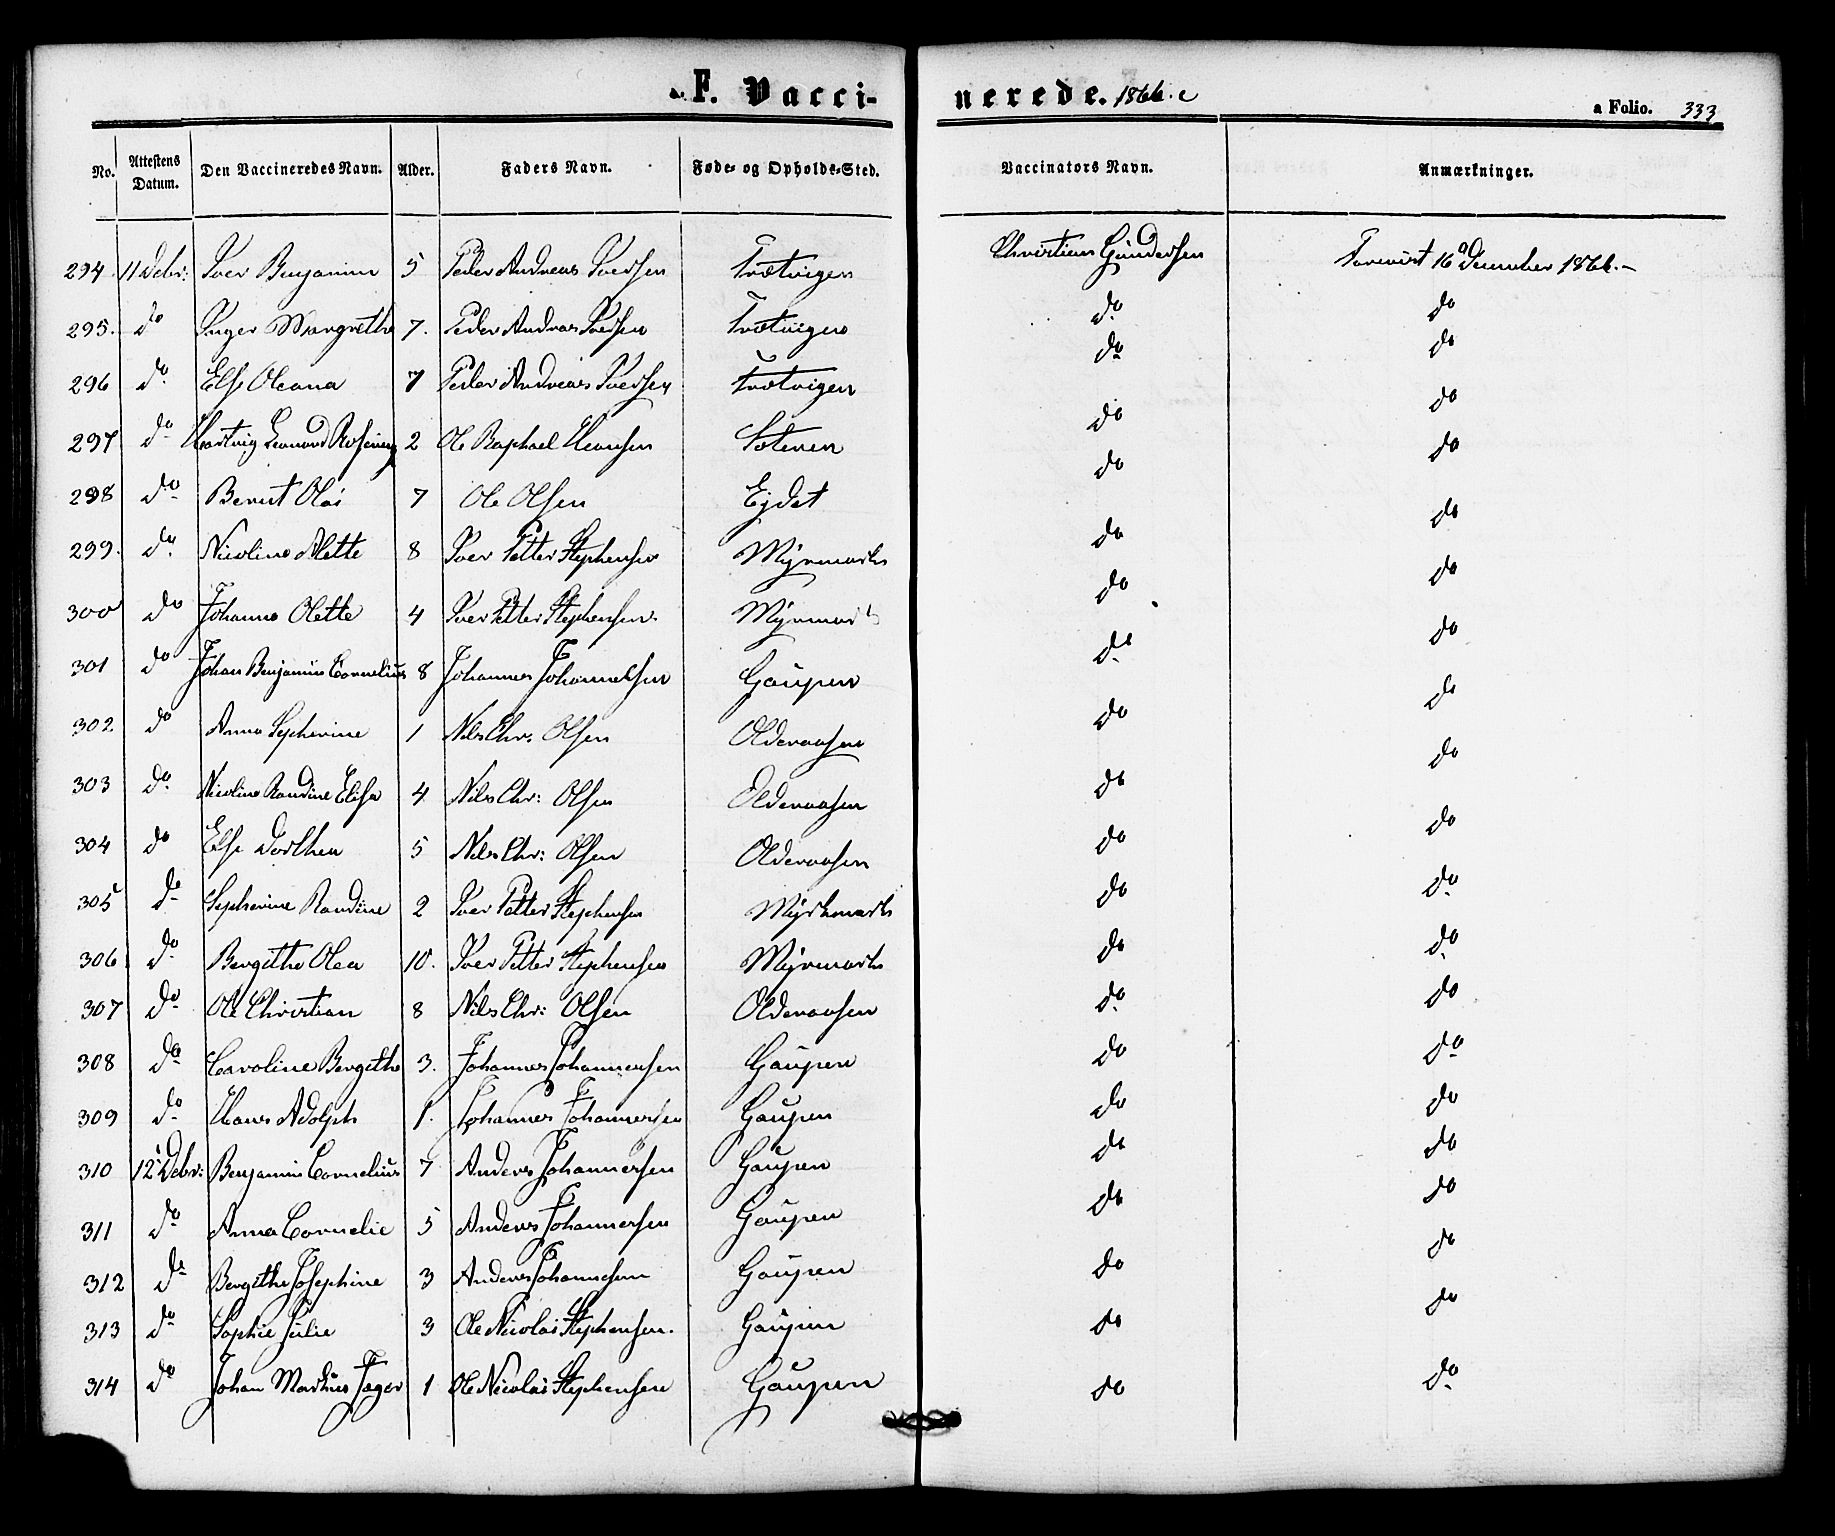 F. Vaccinerede. 1866.
a Folio. 333
No. Attestens Datum. Den Vaccineredes Navn. Alder. Faders Navn. Føde- og Opholds-Sted. Vaccinators Navn. Anmærkninger.
294 11 Debr: Iver Benjamin 5 Peder Andreas Iversen Trætvigen Christian Gundersen Forevist 16 December 1866.-
295. do Inger Margrethe 7. Peder Andreas Iversen Trætvigen do do
296 do Else Oleana 7 Peder Andreas Iversen Trætvigen do do
297 do Hartvig Leonard 2 Ole Raphael Hansen do do
298 do Berent Olai 7 Ole Olsen Ejdet do do
299. do Nicoline Alette 8 Iver Petter Stephensen Myrmark do do
300 do Johanne Olette 4 Iver Petter Stephensen. Myrmark do do
301 do Johan Benjamin Cornelius 8 Johannes Johannessen Gaupen do do
302 do Anna Sepherine 1 Nils Chr: Olsen Olderaasen do do
303 do Nicoline Randine Elisa 4 Nils Chr: Olsen Olderaasen do do
304 do Else Dorthea 5 Nils Chr: Olsen Olderaasen do do
305 do Sepherine Randine 2 Iver Petter Stephensen Myrkmark do do
306 do Bergithe Olea 10. Iver Petter Stephensen Myrmark do do
307 do Ole Christian 8 Nils Chr: Olsen Olderaasen do do
308 do Caroline Bergithe 3. Johannes Johannessen Gaupen do do
309 do Hans Adolph 1. Johannes Johannessen Gaupen do do
310 12 Debr: Benjamin Cornelius 7 Anders Johannessen Gaupen do do
311 do Anna Cornelie 5 Anders Johannessen Gaupen do do
312 do Bergithe Josephine 3 Anders Johannessen Gaupen do do
313 do Sophie Julie 3 Ole Nicolai Stephensen. Gaupen do do
314 do Johan Markus Jæger 1 Ole Nicolai Stephensen Gaupen do do